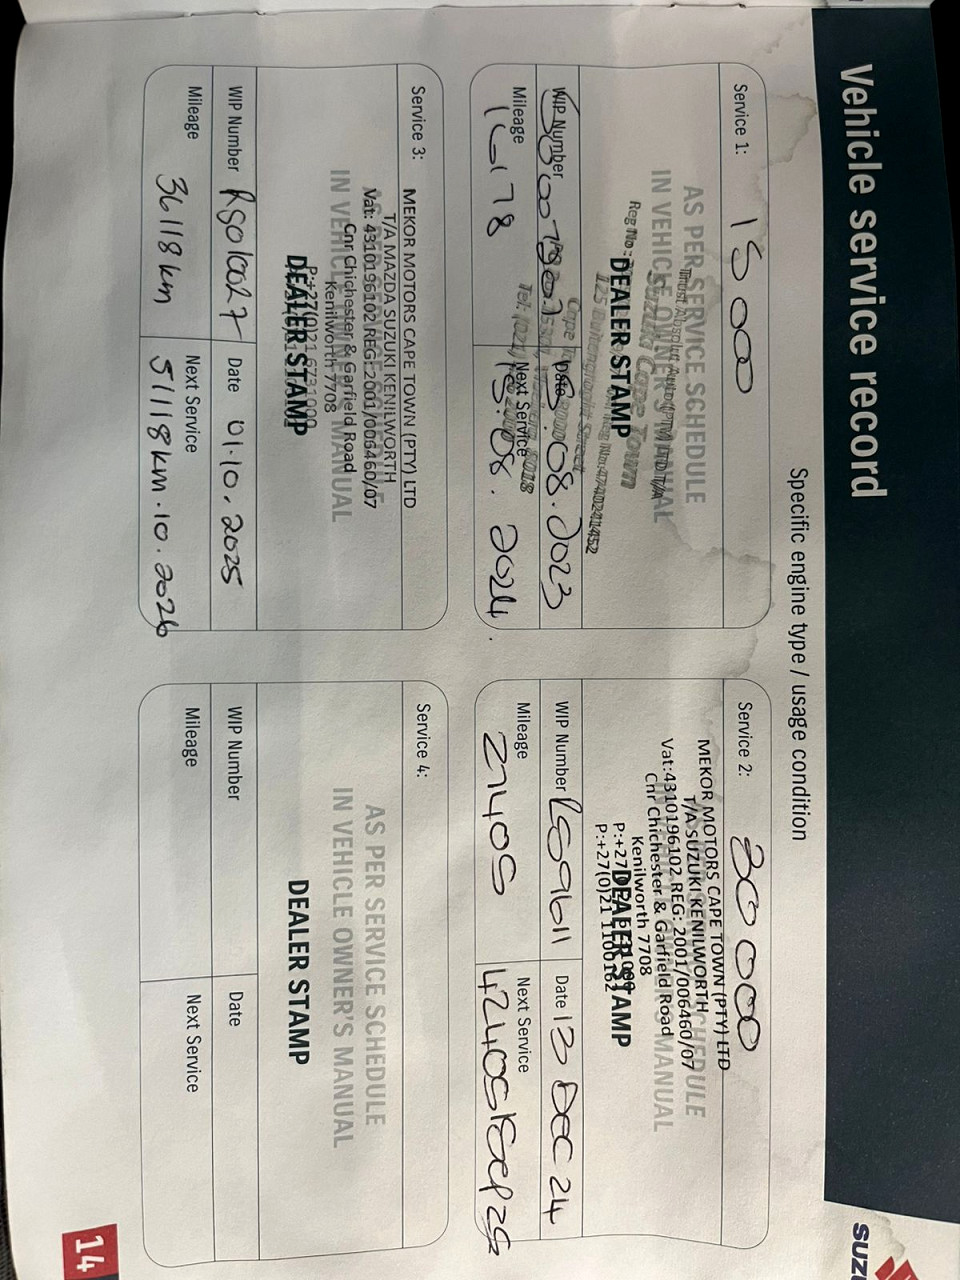 Vehicle service record
SUZ
Specific engine type / usage condition
Service 1: 15 000
AS PER SERVICE SCHEDULE
IN VEHICLE OWNER'S MANUAL
Suzuki Cape Town
DEALER STAMP
Reg No:
WIP Number
Date 15.08.2023
Mileage
Next Service 15.08.2024.
Service 2: 30 000
MEKOR MOTORS CAPE TOWN (PTY) LTD
T/A SUZUKI KENILWORTH
Vat:4310196102 REG: 2001/006460/07
Cnr Chichester & Garfield Road
Kenilworth 7708
AS PER SERVICE SCHEDULE
IN VEHICLE OWNER'S MANUAL
DEALER STAMP
WIP Number RS59611
Date 13 DEC 24
Mileage 27405
Next Service 42405/Sep 25
Service 3:
MEKOR MOTORS CAPE TOWN (PTY) LTD
T/A MAZDA SUZUKI KENILWORTH
Vat: 4310196102 REG: 2001/006460/07
Cnr Chichester & Garfield Road
Kenilworth 7708
AS PER SERVICE SCHEDULE
IN VEHICLE OWNER'S MANUAL
P:+27(0)21 6731000
DEALER STAMP
WIP Number
Date 01.10.2025
Mileage 36118 km
Next Service 51118 km.10.2026
Service 4:
AS PER SERVICE SCHEDULE
IN VEHICLE OWNER'S MANUAL
DEALER STAMP
WIP Number
Date
Mileage
Next Service
14